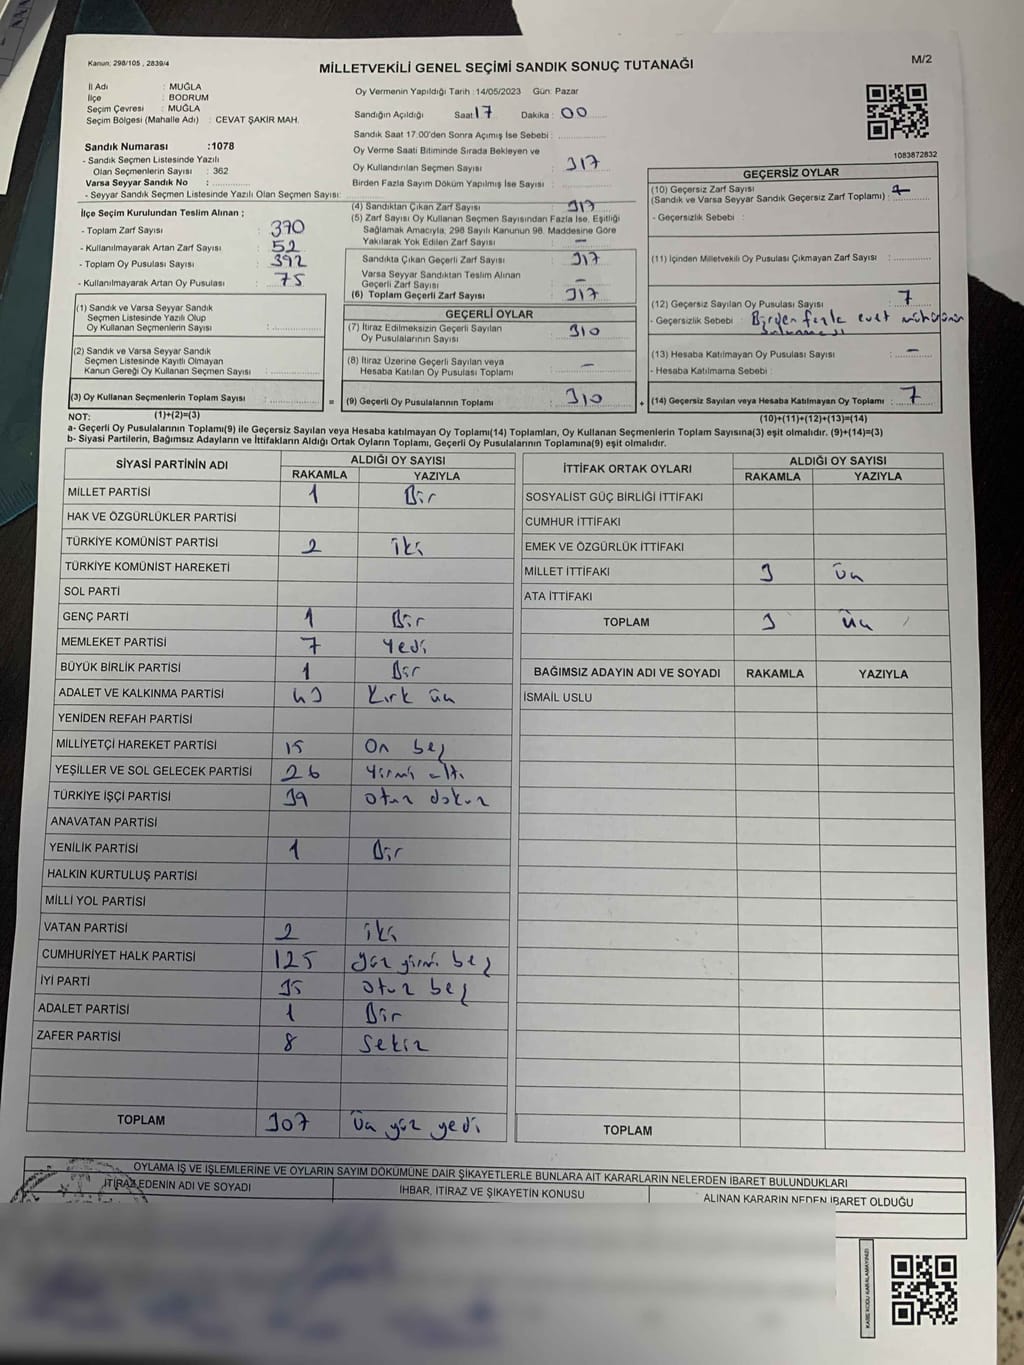 Kanun: 298/105 , 2839/4
M/2
MİLLETVEKİLİ GENEL SEÇİMİ SANDIK SONUÇ TUTANAĞI
İl Adı : MUĞLA
İlçe : BODRUM
Seçim Çevresi : MUĞLA
Seçim Bölgesi (Mahalle Adı) : CEVAT ŞAKİR MAH.
Sandık Numarası :1078
- Sandık Seçmen Listesinde Yazılı
Olan Seçmenlerin Sayısı : 362
Varsa Seyyar Sandık No :
- Seyyar Sandık Seçmen Listesinde Yazılı Olan Seçmen Sayısı:
İlçe Seçim Kurulundan Teslim Alınan ;
- Toplam Zarf Sayısı : 370
- Kullanılmayarak Artan Zarf Sayısı : 52
- Toplam Oy Pusulası Sayısı : 392
- Kullanılmayarak Artan Oy Pusulası : 75
(1) Sandık ve Varsa Seyyar Sandık
Seçmen Listesinde Yazılı Olup
Oy Kullanan Seçmenlerin Sayısı :
(2) Sandık ve Varsa Seyyar Sandık
Seçmen Listesinde Kayıtlı Olmayan
Kanun Gereği Oy Kullanan Seçmen Sayısı :
(3) Oy Kullanan Seçmenlerin Toplam Sayısı :
Oy Vermenin Yapıldığı Tarih : 14/05/2023 Gün: Pazar
Sandığın Açıldığı Saat 17 Dakika : 00
Sandık Saat 17:00'den Sonra Açımış İse Sebebi :
Oy Verme Saati Bitiminde Sırada Bekleyen ve
Oy Kullandırılan Seçmen Sayısı : 317
Birden Fazla Sayım Döküm Yapılmış İse Sayısı :
(4) Sandıktan Çıkan Zarf Sayısı : 317
(5) Zarf Sayısı Oy Kullanan Seçmen Sayısından Fazla İse, Eşitliği
Sağlamak Amacıyla, 298 Sayılı Kanunun 98. Maddesine Göre
Yakılarak Yok Edilen Zarf Sayısı : -
Sandıkta Çıkan Geçerli Zarf Sayısı : 317
Varsa Seyyar Sandıktan Teslim Alınan
Geçerli Zarf Sayısı : -
(6) Toplam Geçerli Zarf Sayısı : 317
GEÇERLİ OYLAR
(7) İtiraz Edilmeksizin Geçerli Sayılan
Oy Pusulalarının Sayısı : 310
(8) İtiraz Üzerine Geçerli Sayılan veya
Hesaba Katılan Oy Pusulası Toplamı : -
= (9) Geçerli Oy Pusulalarının Toplamı : 310
1083872832
GEÇERSİZ OYLAR
(10) Geçersiz Zarf Sayısı
(Sandık ve Varsa Seyyar Sandık Geçersiz Zarf Toplamı) :
- Geçersizlik Sebebi :
(11) İçinden Milletvekili Oy Pusulası Çıkmayan Zarf Sayısı :
(12) Geçersiz Sayılan Oy Pusulası Sayısı : 7
- Geçersizlik Sebebi : Birden fazla evet mührünün
bulunması
(13) Hesaba Katılmayan Oy Pusulası Sayısı : -
- Hesaba Katılmama Sebebi :
+ (14) Geçersiz Sayılan veya Hesaba Katılmayan Oy Toplamı : 7
NOT: (1)+(2)=(3)
(10)+(11)+(12)+(13)=(14)
a- Geçerli Oy Pusulalarının Toplamı(9) ile Geçersiz Sayılan veya Hesaba katılmayan Oy Toplamı(14) Toplamları, Oy Kullanan Seçmenlerin Toplam Sayısına(3) eşit olmalıdır. (9)+(14)=(3)
b- Siyasi Partilerin, Bağımsız Adayların ve İttifakların Aldığı Ortak Oyların Toplamı, Geçerli Oy Pusulalarının Toplamına(9) eşit olmalıdır.
SİYASİ PARTİNİN ADI ALDIĞI OY SAYISI
RAKAMLA YAZIYLA
MİLLET PARTİSİ 1 Bir
HAK VE ÖZGÜRLÜKLER PARTİSİ
TÜRKİYE KOMÜNİST PARTİSİ 2 iki
TÜRKİYE KOMÜNİST HAREKETİ
SOL PARTİ
GENÇ PARTİ 1 Bir
MEMLEKET PARTİSİ 7 Yedi
BÜYÜK BİRLİK PARTİSİ 1 Bir
ADALET VE KALKINMA PARTİSİ 43 Kırk üç
YENİDEN REFAH PARTİSİ
MİLLİYETÇİ HAREKET PARTİSİ 15 On beş
YEŞİLLER VE SOL GELECEK PARTİSİ 26 Yirmi altı
TÜRKİYE İŞÇİ PARTİSİ 39 otuz dokuz
ANAVATAN PARTİSİ
YENİLİK PARTİSİ 1 Bir
HALKIN KURTULUŞ PARTİSİ
MİLLİ YOL PARTİSİ
VATAN PARTİSİ 2 iki
CUMHURİYET HALK PARTİSİ 125 yüz yirmi beş
İYİ PARTİ 35 otuz beş
ADALET PARTİSİ 1 Bir
ZAFER PARTİSİ 8 Sekiz
TOPLAM 307 Üç yüz yedi
İTTİFAK ORTAK OYLARI ALDIĞI OY SAYISI
RAKAMLA YAZIYLA
SOSYALİST GÜÇ BİRLİĞİ İTTİFAKI
CUMHUR İTTİFAKI
EMEK VE ÖZGÜRLÜK İTTİFAKI
MİLLET İTTİFAKI 3 üç
ATA İTTİFAKI
TOPLAM 3 Üç
BAĞIMSIZ ADAYIN ADI VE SOYADI RAKAMLA YAZIYLA
İSMAİL USLU
TOPLAM
OYLAMA İŞ VE İŞLEMLERİNE VE OYLARIN SAYIM DÖKÜMÜNE DAİR ŞİKAYETLERLE BUNLARA AİT KARARLARIN NELERDEN İBARET BULUNDUKLARI
İTİRAZ EDENİN ADI VE SOYADI İHBAR, İTİRAZ VE ŞİKAYETİN KONUSU ALINAN KARARIN NEDEN İBARET OLDUĞU